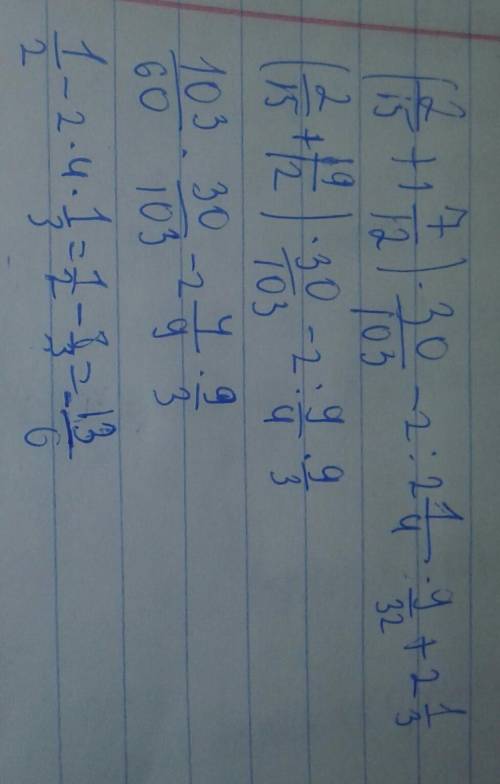 (2/15 + 1 7/12) · 30/103 - 2 : 2 1/4 · 9/32 + 2 1/3
(2/15 + 19/12) · 30/103 - 2 : 9/4 · 9/3
103/60 · 30/103 - 2 4/9 · 9/3
1/2 - 2 · 4 · 1/3 = 1/2 - 8/3 = -13/6